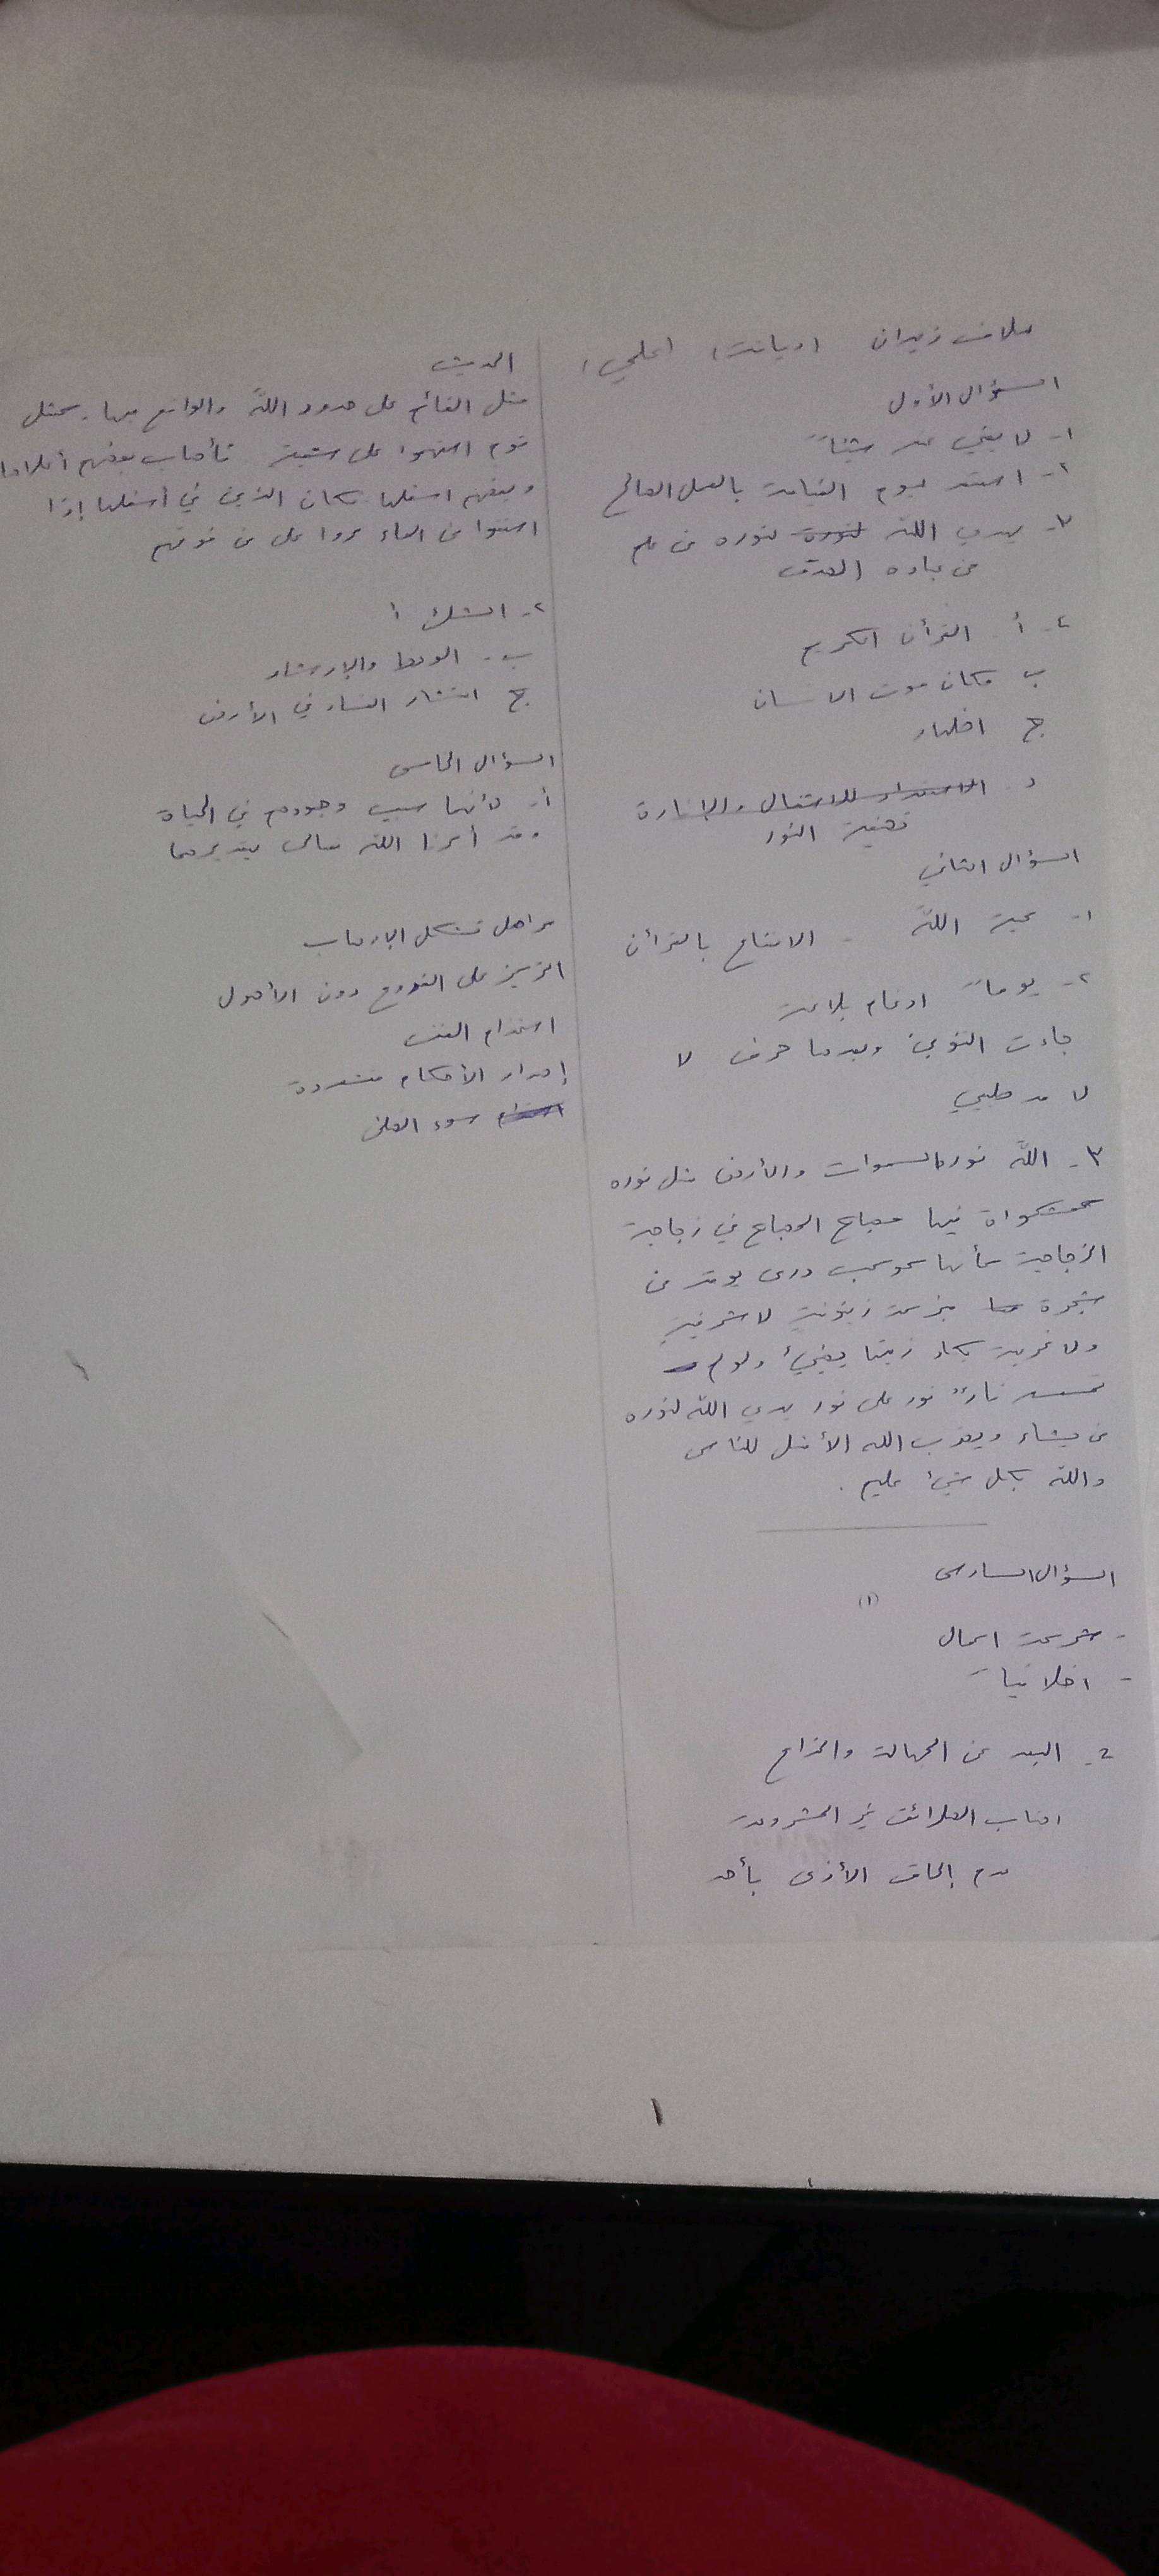 السؤال الأول
١- لا يغني عنه شيئاً
٢- استعد ليوم القيامة بالعمل الصالح
٣- يهدي الله لنوره من علم
من عباده الصدق
٤- أ. القرآن الكريم
ب مكان موت الانسان
ج اظهار
د. الاستعداد للاشتعال والإنارة
السؤال الثاني
١- محبة الله - الانتفاع بالقرآن
٢- يوماً ادغام بلاغنة
جاءت التنوين وبعدها حرف لا
لا مد طبيعي
٣- الله نور السموات والأرض مثل نوره
كمشكواة فيها مصباح المصباح في زجاجة
الزجاجة كأنها كوكب درى يوقد من
شجرة مبركة زيتونة لا شرقية
ولا غربية يكاد زيتها يضيئ ولو لم
تمسسه نارٌ نور على نور يهدي الله لنوره
من يشاء ويضرب الله الأمثل للناس
والله بكل شيئ عليم .
السؤال السادس
(١)
- أخلاقيات
2- البعد عن الجهالة والمزاح
العلائق غير المشروعة
عدم إلحاق الأذى بأحد
الحديث
مثل القائم على حدود الله والواقع فيها، كمثل
قوم استهموا على سفينة فأصاب بعضهم أعلاها
وبعضهم اسفلها فكان الذين في أسفلها إذا
استقوا من الماء مروا على من فوقهم
٢- أ
ب- الوعظ والإرشاد
ج انتشار الفساد في الأرض
السؤال الخامس
أ- لأنهما سبب وجودهم في الحياة
وقد أمرنا الله تعالى ببرهما
مراحل تشكل الإرهاب
التركيز على الفروع دون الأصول
استخدام العنف
إصدار الأحكام متشددة
سوء الظن